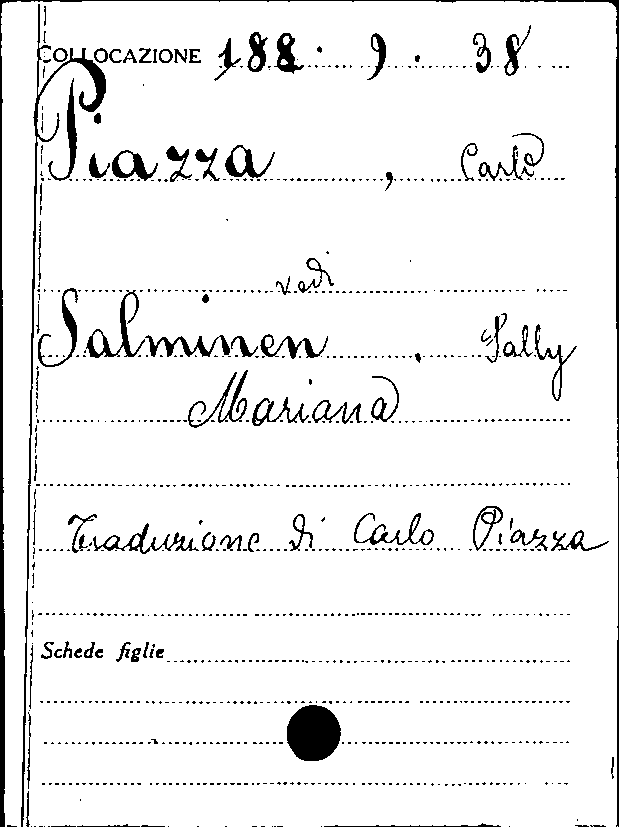 COLLOCAZIONE 188. 9. 38
Piazza, Carlo
vedi
Salminen, Sally
Mariana
Traduzione di Carlo Piazza
Schede figlie